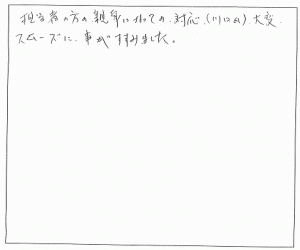 担当者の方の親身になっての対応、(川口さん)、大変
スムーズに、事がすすみました。